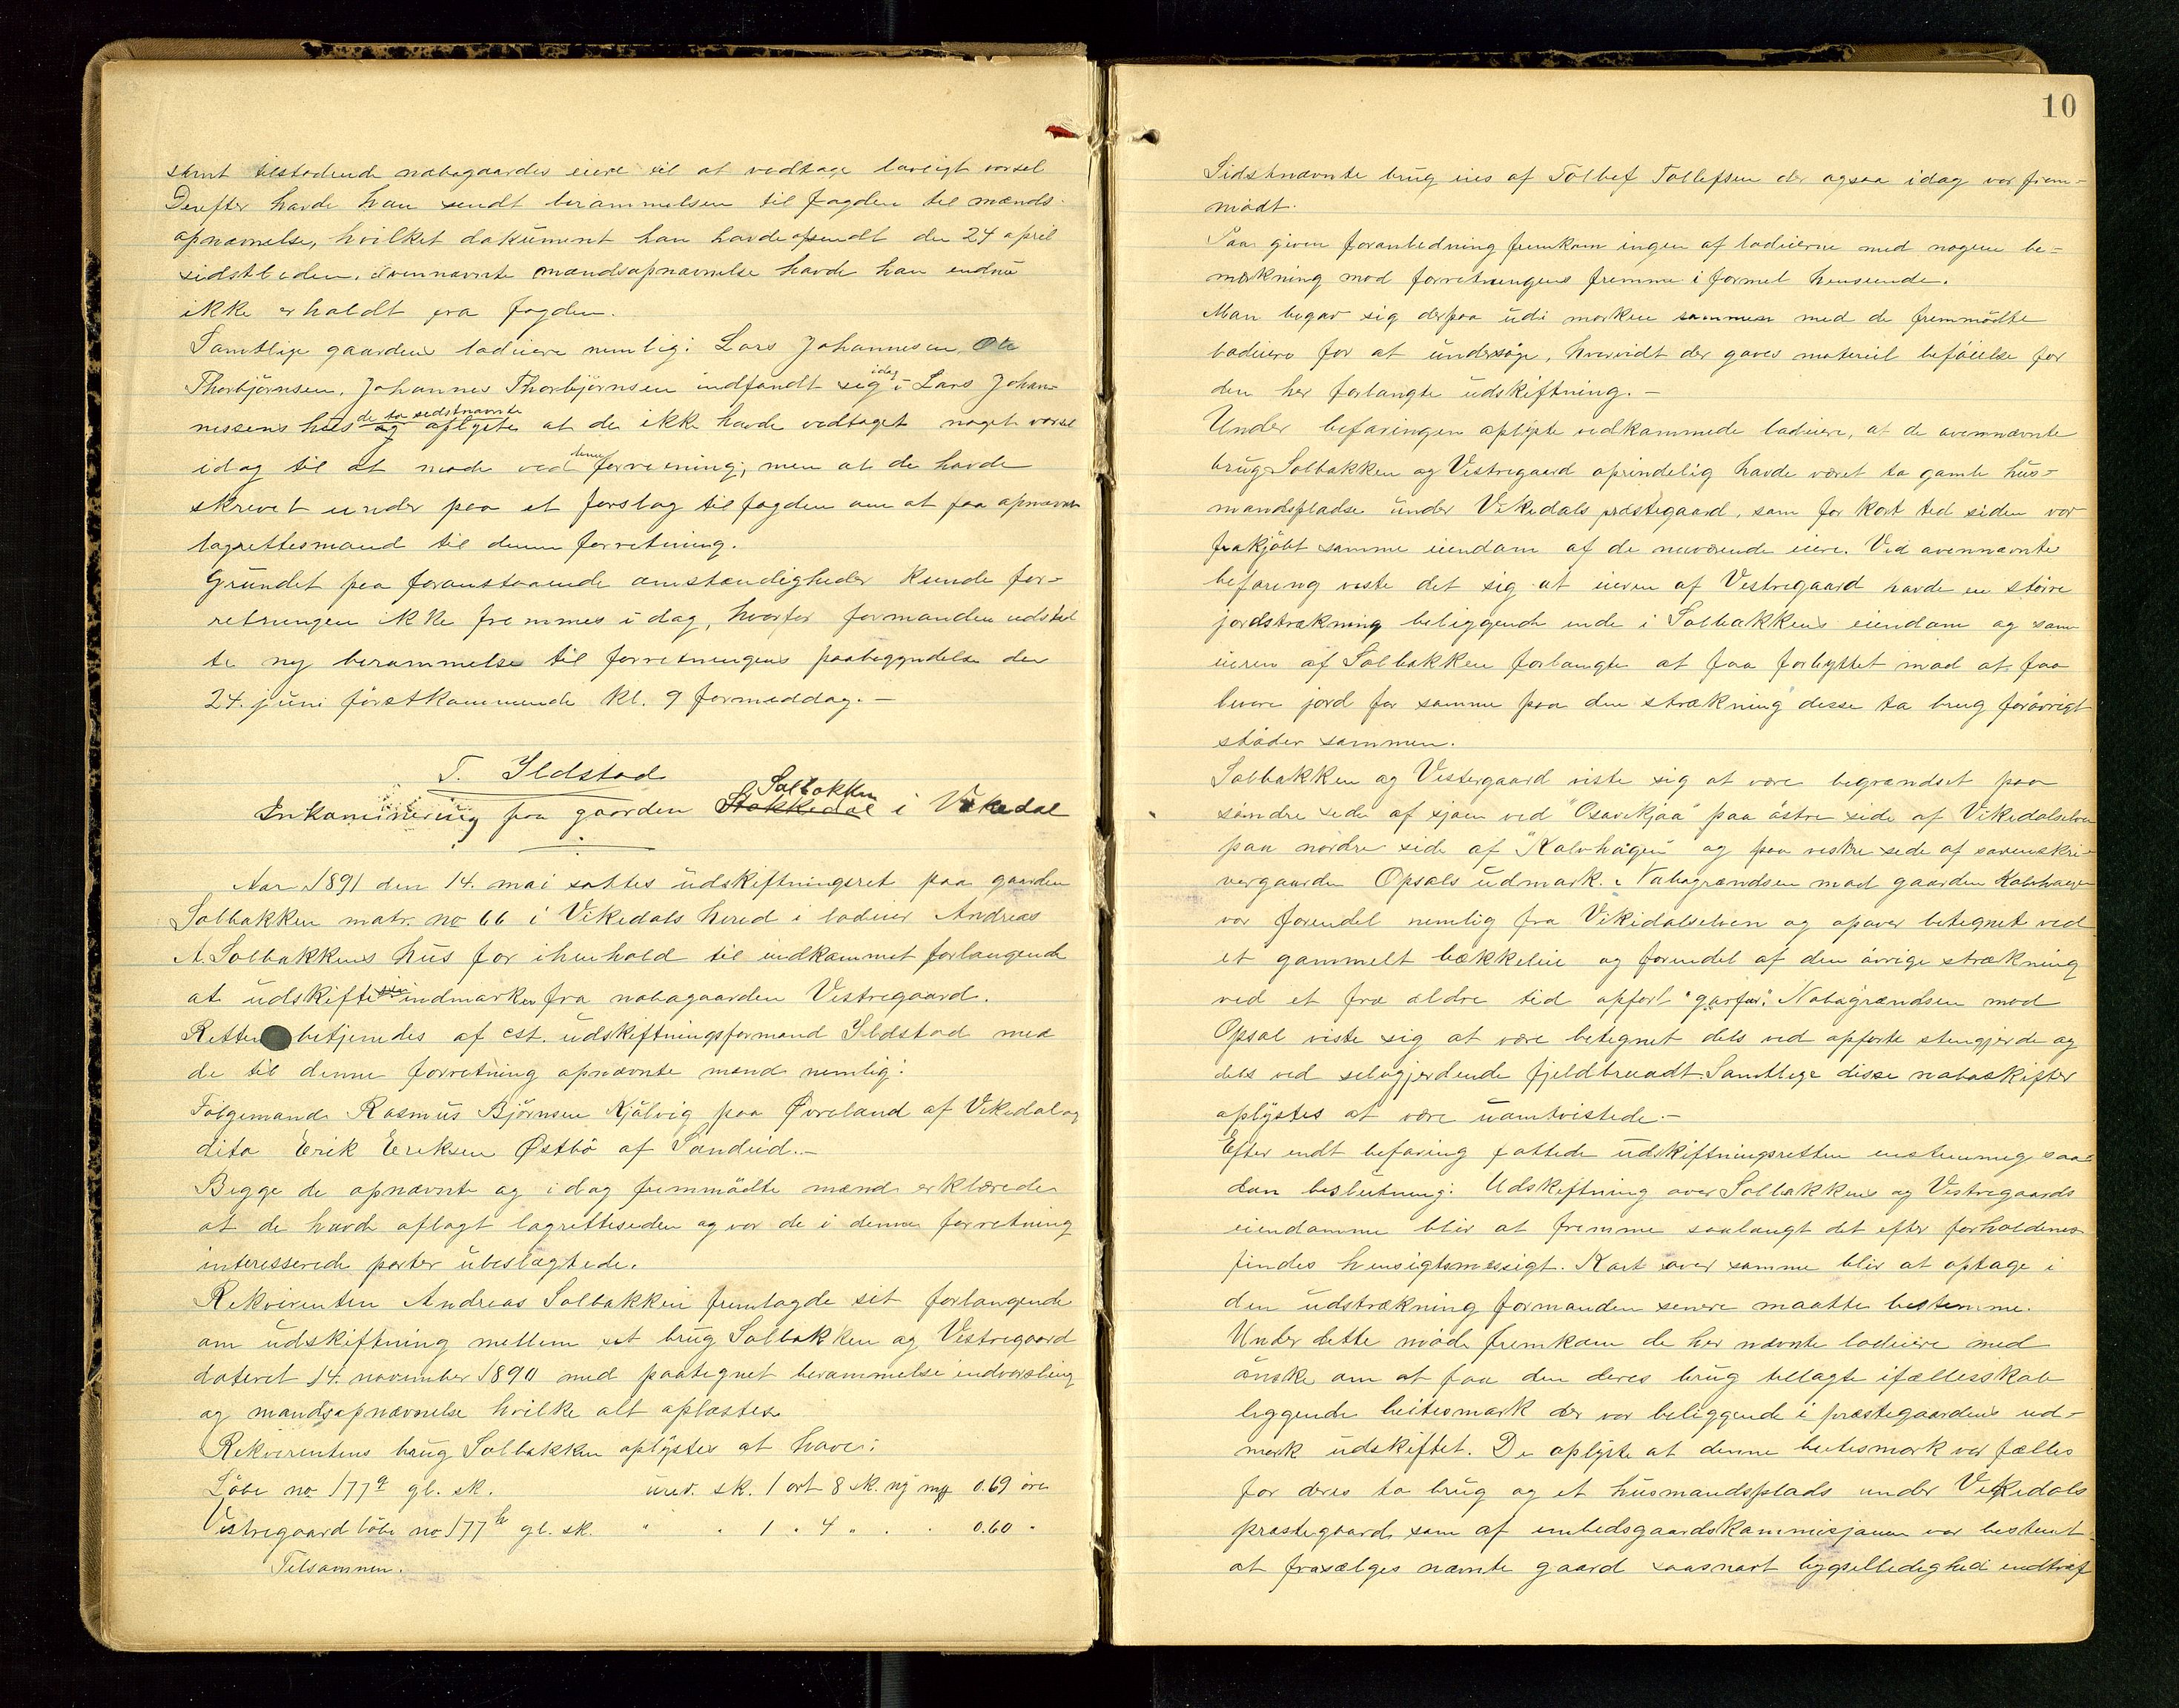 samt tilstødende nabogaardes eiere til at vedtage lovligt varsel
Derefter havde han sendt berammelsen til fogden til mænds-
opnævnelse, hvilket dokument han havde afsendt den 24 april
sidstleden. Ovennævnte mandsopnævnelse havde han endnu
ikke erholdt fra fogden.
Samtlige gaardens lodeiere nemlig: Lars Johannesen, Ole
Thorbjørnsen, Johannes Thorbjørnsen indfandt sig idag i Lars Johan-
nessens hus og de to sidstnævnte oplyste at de ikke havde vedtaget noget varsel
idag til at møde ved denne forretning; men at de havde
skrevet under paa et forslag til fogden om at faa opnævnt
lagrettesmænd til denne forretning.
Grundet paa foranstaaende omstændigheder kunde for-
retningen ikke fremmes i dag, hvorfor formanden udsted
te ny berammelse til forretningens paabegyndelse den
24. juni førstkommende kl. 9 formeddag. —
T. Ildstad
Inkaminering paa gaarden Stokkedal Solbakken i Vikedal
Aar 1891 den 14. mai sattes udskiftningsret paa gaarden
Solbakken matr. no 66 i Vikedals hered i lodeier Andreas
A. Solbakkens hus for i henhold til indkommet forlangende
at udskifte indmarken fra nabogaarden Vestregaard.
Retten betjendes af cst. udskiftningsformand Ildstad med
de til denne forretning opnævnte mænd nemlig:
Følgemand Rasmus Bjørnsen Kjølvig paa Øvreland af Vikedal og
dito Erik Eriksen Østbø af Sandeid. —
Begge de opnævnte og i dag fremmødte mænd erklærede
at de havde aflagt lagretteseden og var de i denne forretning
interesserede parter ubeslægtede.
Rekvirenten Andreas Solbakken fremlagde sit forlangende
om udskiftning mellem sit brug Solbakken og Vestregaard
dateret 14. november 1890 med paategnet berammelse indvarsling
og mandsopnævnelse hvilke alt oplæstes.
Rekvirentens brug Solbakken oplystes at have:
Løbe no 177a gl. sk. urev. sk. 1 ort 8 sk. ny mp 0.69 øre
Vestregaard løbe no 177b gl. sk. " " 1 " 4 " . . 0.60 "
Tilsammen.
10
Sidstnævnte brug eies af Tollef Tollefsen der ogsaa idag var frem-
mødt.
Paa given foranledning fremkom ingen af lodeierne med nogen be-
mærkning mod forretningens fremme i formel henseende.
Man begav sig derpaa udi marken sammen med de fremmødte
lodeiere for at undersøge, hvorvidt der gaves materiel beføielse for
den her forlangte udskiftning. —
Under befaringen oplyste vedkommende lodeiere, at de ovennævnte
brug Solbakken og Vestregaard oprindelig havde været to gamle hus-
mandspladse under Vikedals præstegaard, som for kort tid siden var
frakjøbt samme eiendom af de nuværende eiere. Ved ovennævnte
befaring viste det sig at eieren af Vestregaard havde en større
jordstrækning beliggende inde i Solbakkens eiendom og som
eieren af Solbakken forlangte at faa forbyttet mod at faa
levere jord for samme paa den strækning disse to brug forøvrigt
støder sammen.
Solbakken og Vestergaard viste sig at være begrændset paa
søndre side af sjøen ved "Osavikjaa" paa østre side af Vikedalselven
paa nordre side af "Kalvhagen" og paa vestre side af sorenskri-
vergaarden Opsals udmark. Nabogrændsen mod gaarden Kalvhagen
var forendel nemlig fra Vikedalselven og opover betegnet ved
et gammelt bækkeleie og forendel af den øvrige strækning
ved et fra ældre tid opført "garfar". Nabogrændsen mod
Opsal viste sig at være betegnet dels ved opførte stengjerde og
dels ved selvgjerdende fjeldbrændt. Samtlige disse naboskifter
oplystes at være uomtvistede. —
Efter endt befaring fattede udskiftningsretten enstemmig saa-
dan beslutning: Udskiftning over Solbakkens og Vestregaards
eiendomme blir at fremme saalangt det efter forholdenes
findes hensigtsmæssigt. Kart over samme blir at optage i
den udstrækning formanden senere maatte bestemme.
Under dette møde fremkom de her nævnte lodeiere med
ønske om at faa den deres brug tillagte i fællesskab
liggende beitesmark der var beliggende i præstegaardens ud-
mark udskiftet. De oplyste at denne beitesmark var fælles
for deres to brug og et husmandsplads under Vikedals
præstegaard som af embedsgaardskommisjonen var bestemt
at frasælges nævnte gaard saasnart bygselledighed indtraf